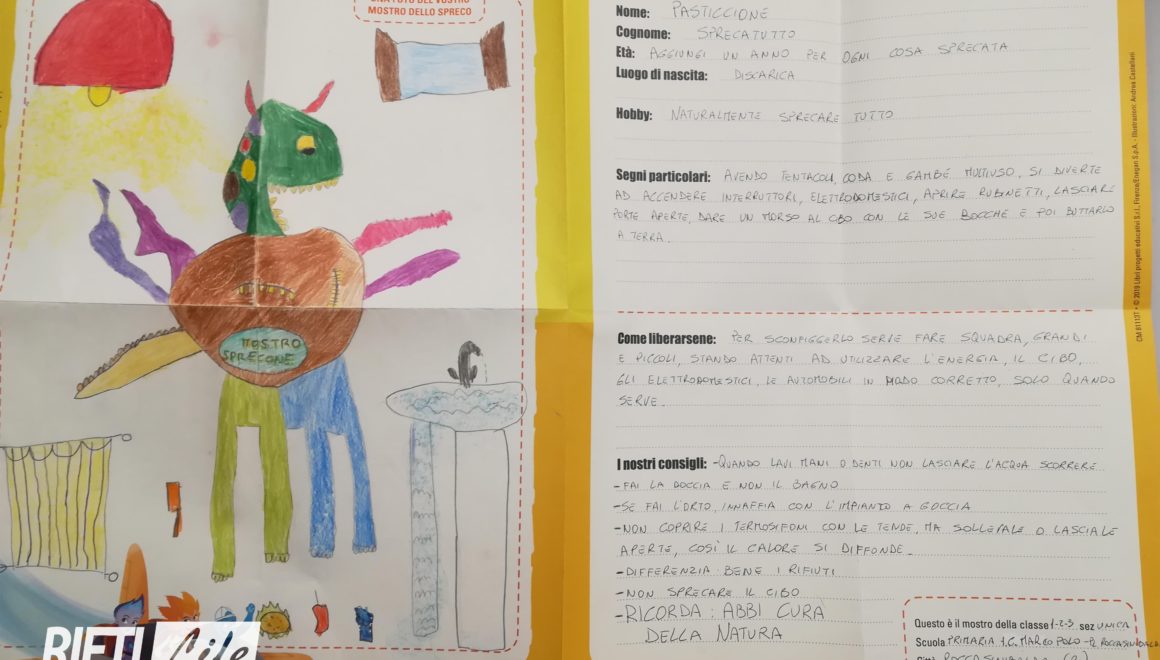 MOSTRO DELLO SPRECO
MOSTRO
SPRECONE
RIETI Life
Nome: PASTICCIONE
Cognome: SPRECATUTTO
Età: AGGIUNGI UN ANNO PER OGNI COSA SPRECATA
Luogo di nascita: DISCARICA
Hobby: NATURALMENTE SPRECARE TUTTO
Segni particolari: AVENDO TENTACOLI, CODA E GAMBE MULTIUSO, SI DIVERTE
AD ACCENDERE INTERRUTTORI, ELETTRODOMESTICI, APRIRE RUBINETTI, LASCIARE
PORTE APERTE, DARE UN MORSO AL CIBO CON LE SUE BOCCHE E POI BUTTARLO
A TERRA.
Come liberarsene: PER SCONFIGGERLO SERVE FARE SQUADRA, GRANDI
E PICCOLI, STANDO ATTENTI AD UTILIZZARE L'ENERGIA, IL CIBO,
GLI ELETTRODOMESTICI, LE AUTOMOBILI IN MODO CORRETTO, SOLO QUANDO
SERVE.
I nostri consigli: -QUANDO LAVI MANI O DENTI NON LASCIARE L'ACQUA SCORRERE
-FAI LA DOCCIA E NON IL BAGNO
-SE FAI L'ORTO, INNAFFIA CON L'IMPIANTO A GOCCIA
-NON COPRIRE I TERMOSIFONI CON LE TENDE, MA SOLLEVALE O LASCIALE
APERTE, COSÌ IL CALORE SI DIFFONDE.
-DIFFERENZIA BENE I RIFIUTI
-NON SPRECARE IL CIBO
-RICORDA: ABBI CURA
DELLA NATURA
Questo è il mostro della classe 1-2-3 sez UNICA
Scuola PRIMARIA I.C. MARCO POLO
CM 81113T • © 2019 Libri progetti educativi S.r.l., Firenze/Enegan S.p.A. - Illustrazioni: Andrea Castellani